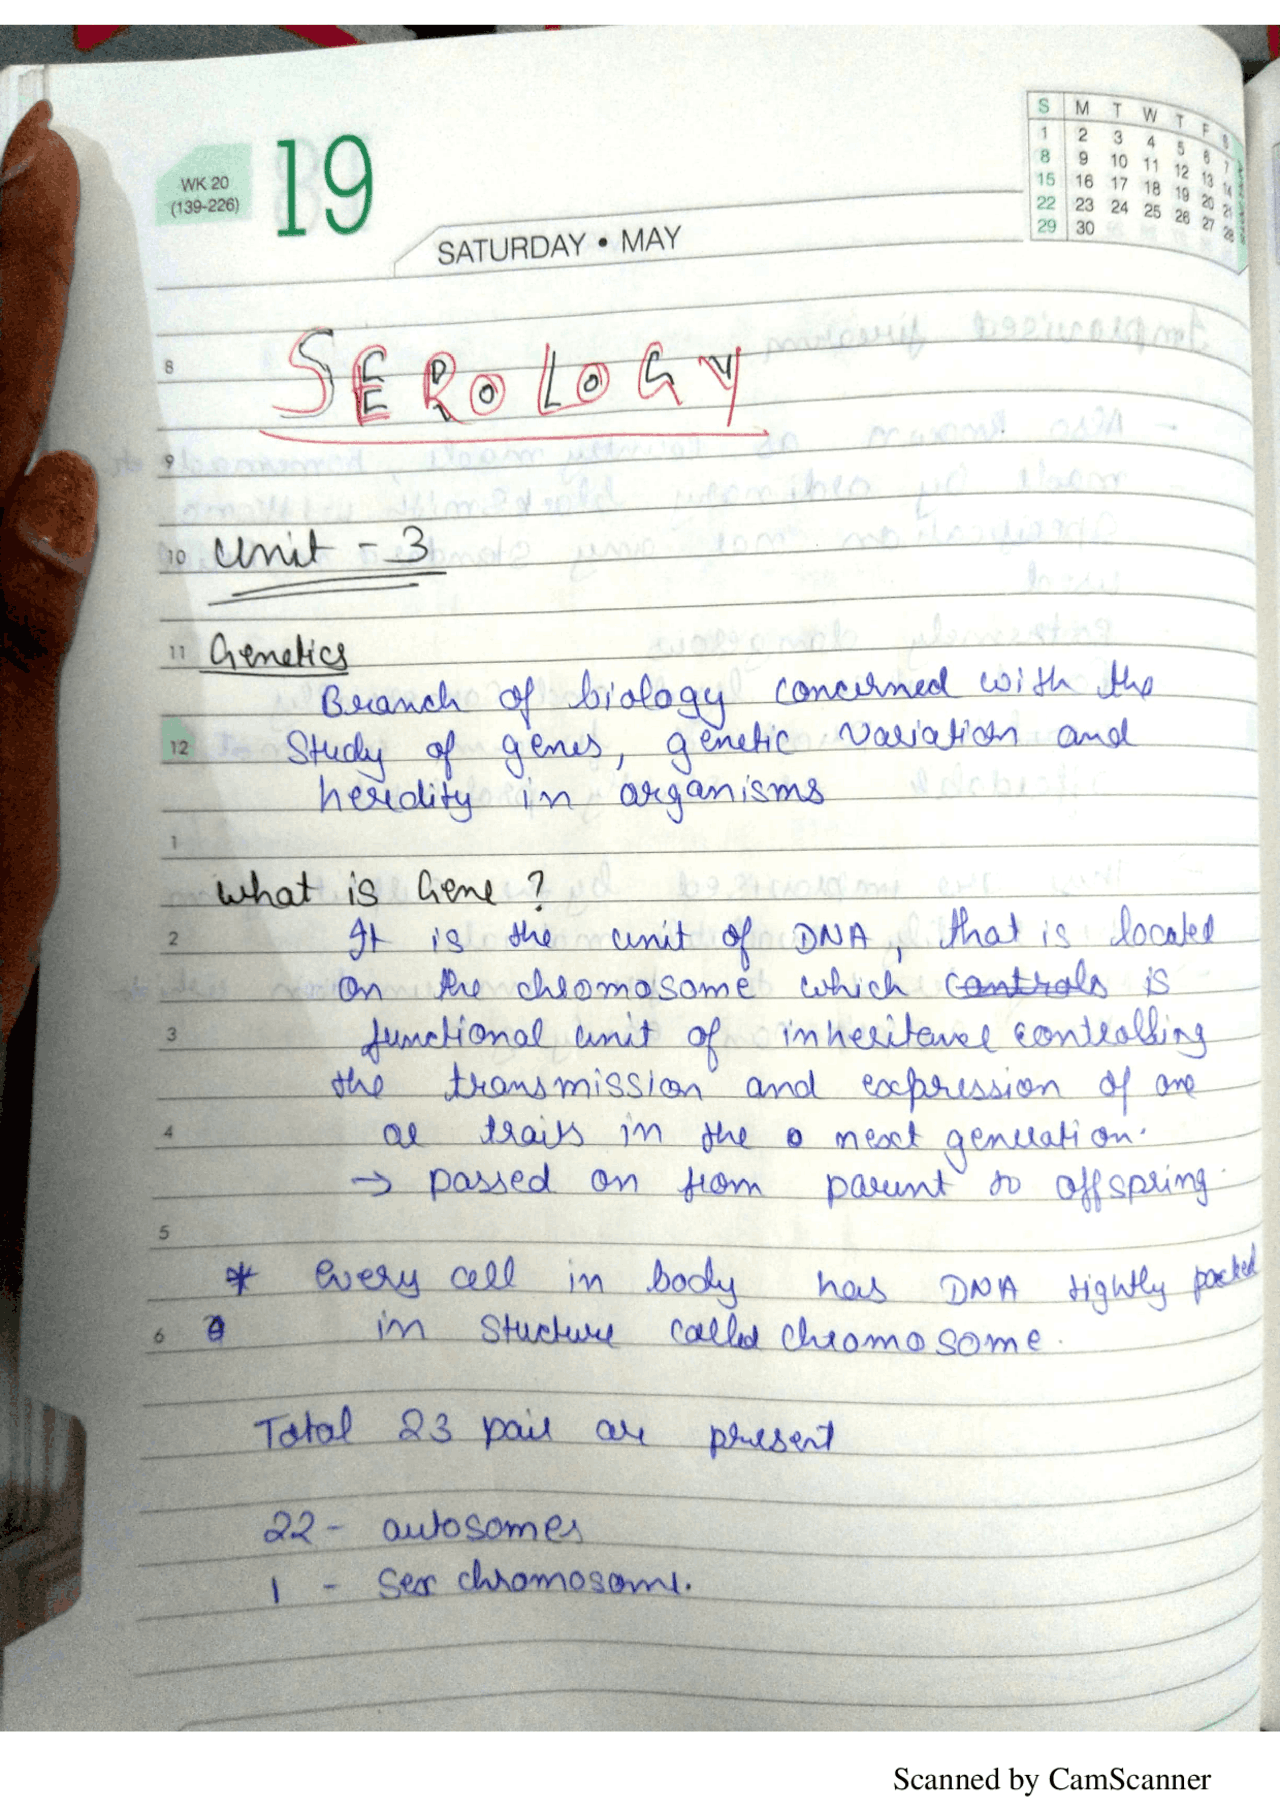 WK 20
(139-226)
19
SATURDAY • MAY
S M T W T F S
1 2 3 4 5 6 7
8 9 10 11 12 13 14
15 16 17 18 19 20 21
22 23 24 25 26 27 28
29 30
8
SEROLOGY
9
10 Unit - 3
11 Genetics
Branch of biology concerned with the
12 Study of genes, genetic variation and
heredity in organisms
1
What is Gene ?
2 It is the unit of DNA, that is located
on the chromosome which controls is
3 functional unit of inheritance controlling
the transmission and expression of one
4 or traits in the next generation.
→ passed on from parent to offspring.
5
* every cell in body has DNA tightly packed
6 in structure called chromosome.
Total 23 pair are present
22 - autosomes
1 - Sex chromosome.
Scanned by CamScanner